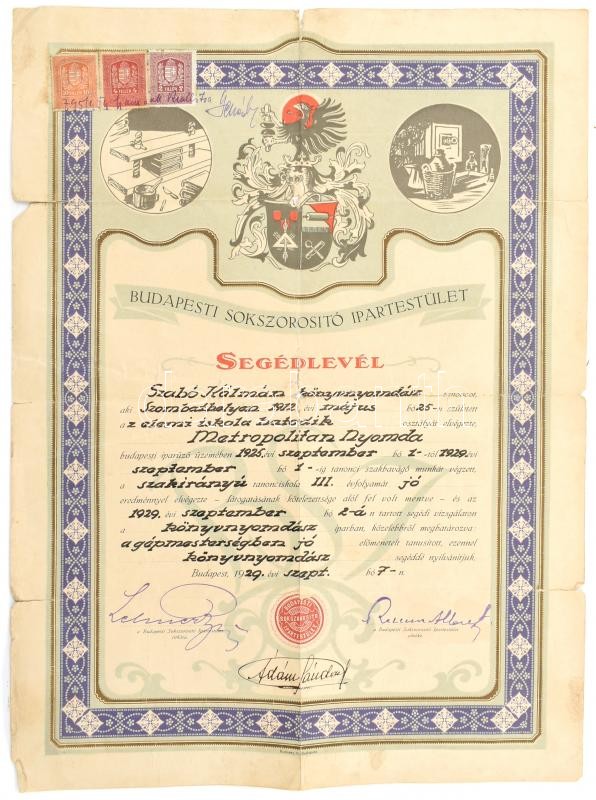 BUDAPESTI SOKSZOROSITÓ IPARTESTÜLET
SEGÉDLEVÉL
Szabó Kálmán könyvnyomdász tanoncot,
aki Szombathelyen 1912. évi május hó 25-n született
a z elemi iskola hatodik osztályát elvégezte,
Metropolitan Nyomda
budapesti iparűző üzemében 1925. évi szeptember hó 1-től 1929. évi
szeptember hó 1-ig tanonci szakbavágó munkát végzett,
a szakirányú tanonciskola III. évfolyamát jó
eredménnyel elvégezte - látogatásának kötelezettsége alól fel volt mentve - és az
1929. évi szeptember hó 2-á n tartott segédi vizsgálaton
a könyvnyomdász iparban, közelebbről meghatározva
a gépmesterségben jó előmenetelt tanusított, ezennel
könyvnyomdász segéddé nyilvánítjuk.
Budapest, 1929. évi szept. hó 7-n.
a Budapesti Sokszorosító Ipartestület
a Budapesti Sokszorosító Ipartestület
elnöke.
BUDAPESTI SOKSZOROSITÓ IPARTESTÜLET
Ádám Sándor